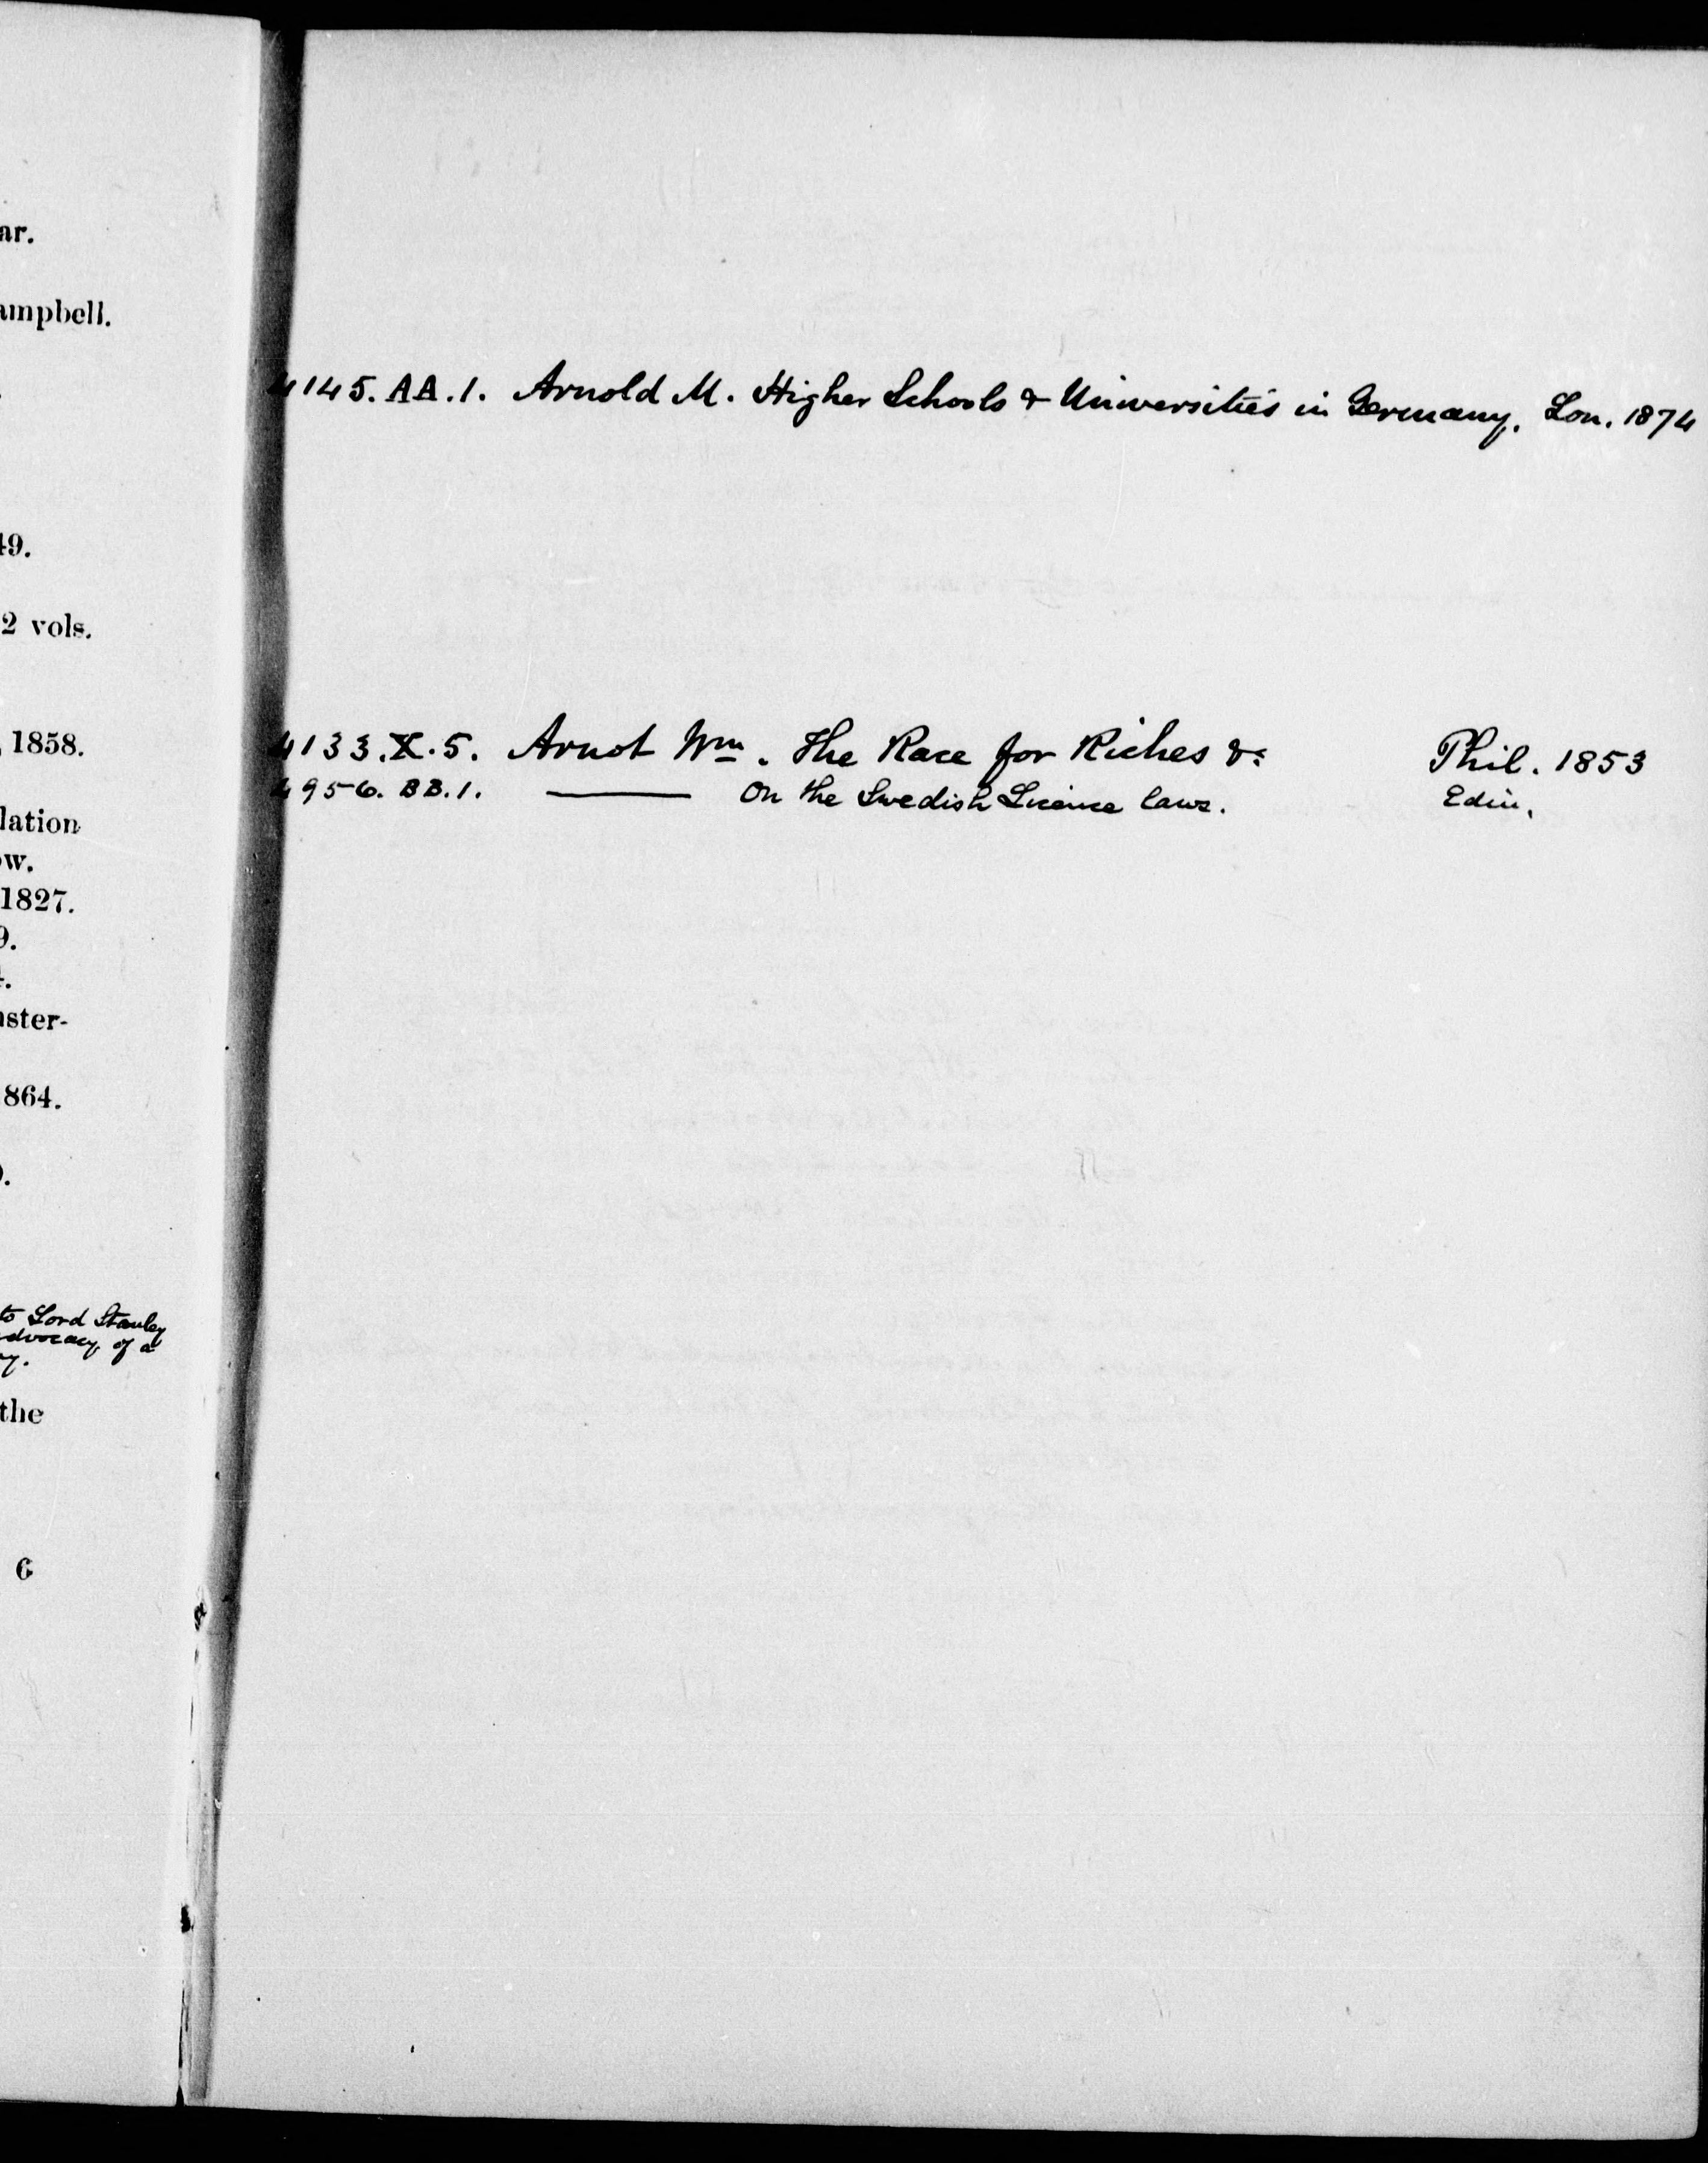 ar.
ampbell.
49.
2 vols.
, 1858.
lation
ow.
1827.
9.
4.
nster-
1864.
0.
to Lord Stanley
advocacy of a
y.
the
6
4145. AA. 1. Arnold M. Higher Schools & Universities in Germany. Lon. 1874
4133. X. 5. Arnot Wm. The Race for Riches &c Phil. 1853
4956. BB. 1. ——— On the Swedish Licence laws. Edin.